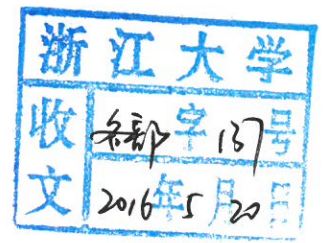 浙江大学
收文 各部字157号
2016年5月20日